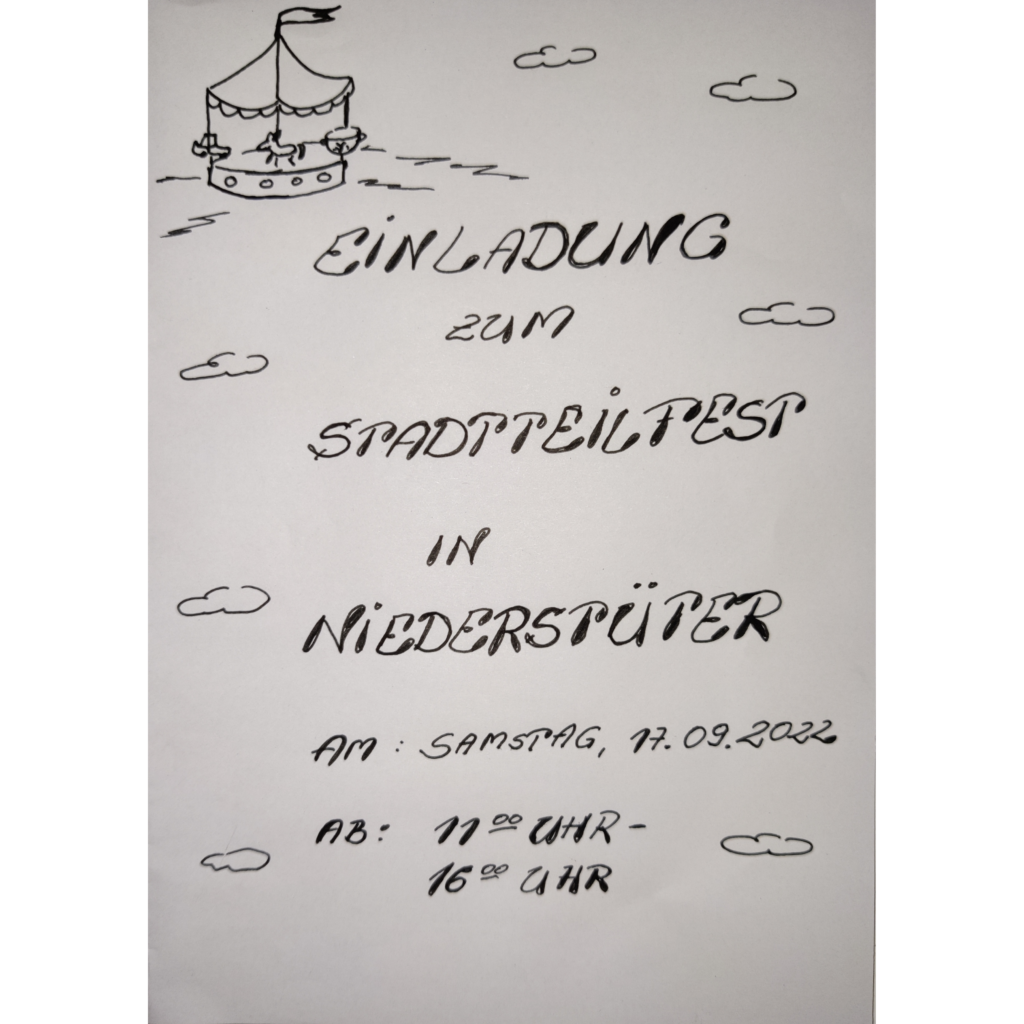 EINLADUNG
ZUM
STADTTEILFEST
IN
NIEDERSTÜTER
AM : SAMSTAG, 17.09.2022
AB: 11⁰⁰ UHR -
16⁰⁰ UHR